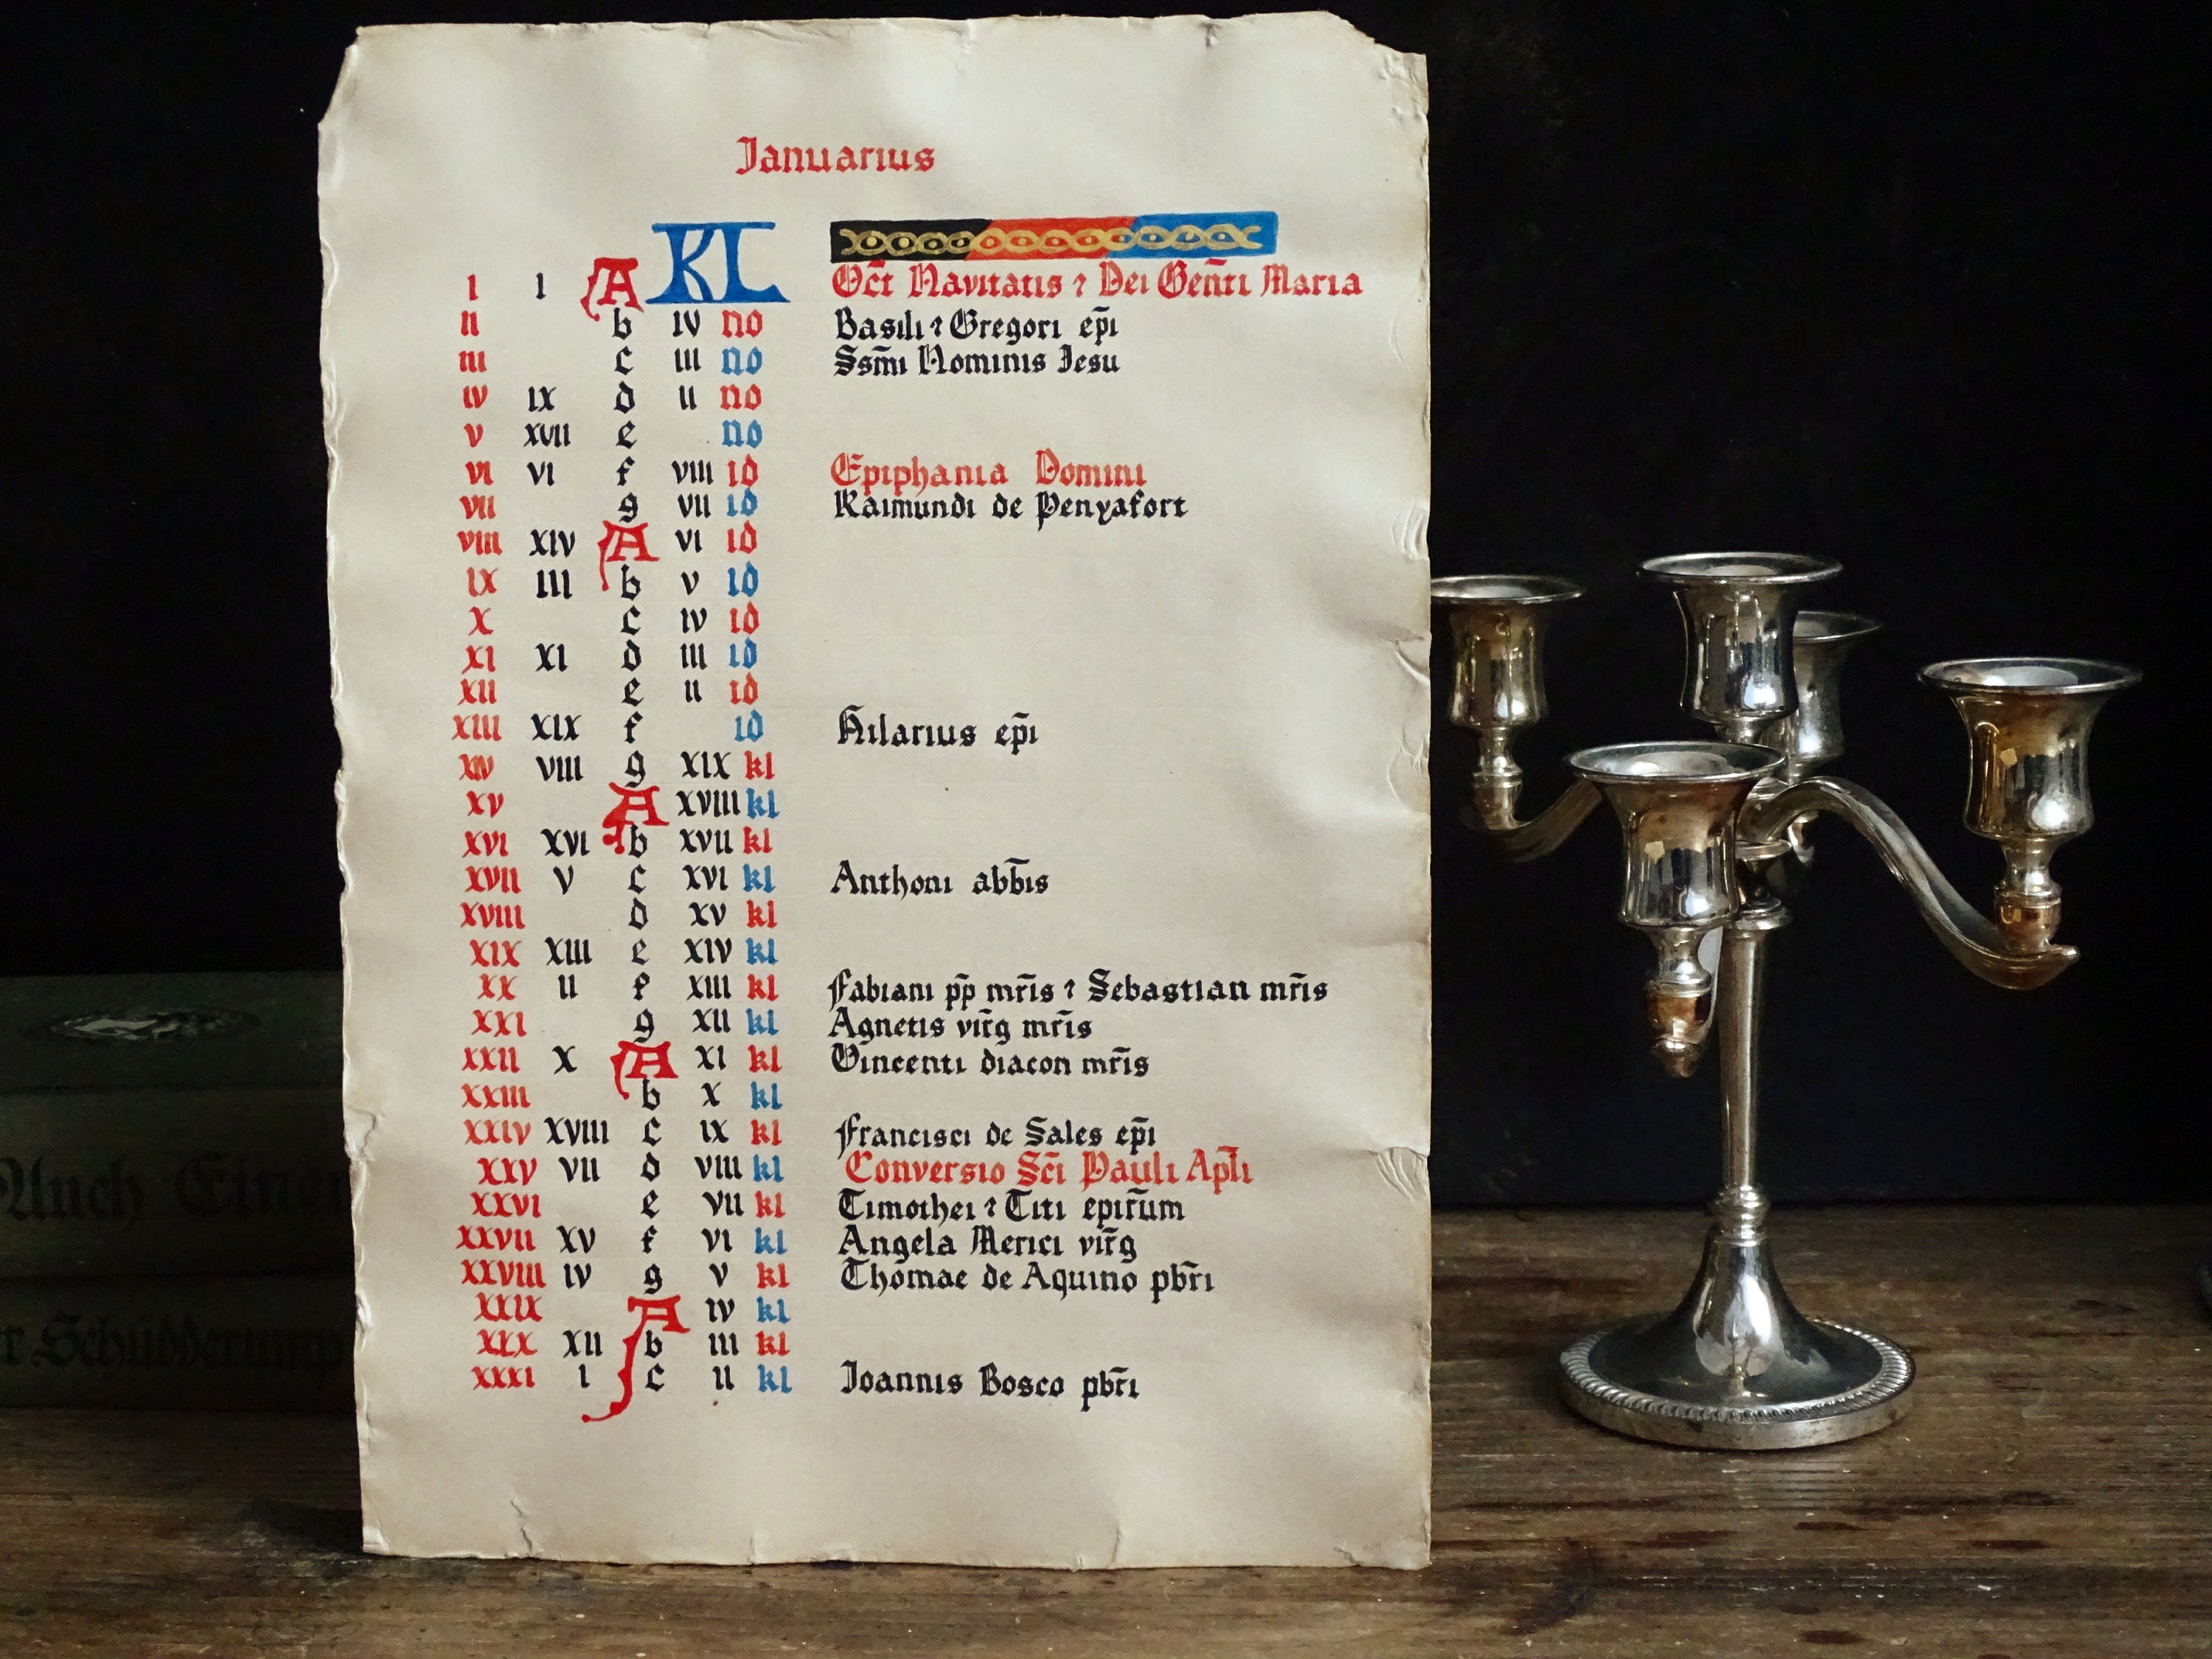 Januarius
I I A KL Oc̃t Navitatis ⁊ Dei Geñti Maria
II b IV no Basili ⁊ Gregori ep̃i
III c III no Ssm̃i Nominis Jesu
IV IX d II no
V XVII e no
VI VI f VIII id Epiphania Domini
VII g VII id Raimundi de Penyafort
VIII XIV A VI id
IX III b V id
X c IV id
XI XI d III id
XII e II id
XIII XIX f id Hilarius ep̃i
XIV VIII g XIX kl
XV A XVIII kl
XVI XVI b XVII kl
XVII V c XVI kl Anthoni abb̃is
XVIII d XV kl
XIX XIII e XIV kl
XX II f XIII kl Fabiani pp̃ mr̃is ⁊ Sebastian mr̃is
XXI g XII kl Agnetis vir̃g mr̃is
XXII X A XI kl Vincenti diacon mr̃is
XXIII b X kl
XXIV XVIII c IX kl Francisci de Sales ep̃i
XXV VII d VIII kl Conversio Sc̃i Pauli Apl̃i
XXVI e VII kl Timothei ⁊ Titi epir̃um
XXVII XV f VI kl Angela Merici vir̃g
XXVIII IV g V kl Thomae de Aquino pbr̃i
XXIX A IV kl
XXX XII b III kl
XXXI I c II kl Joannis Bosco pbr̃i
Auch Einer